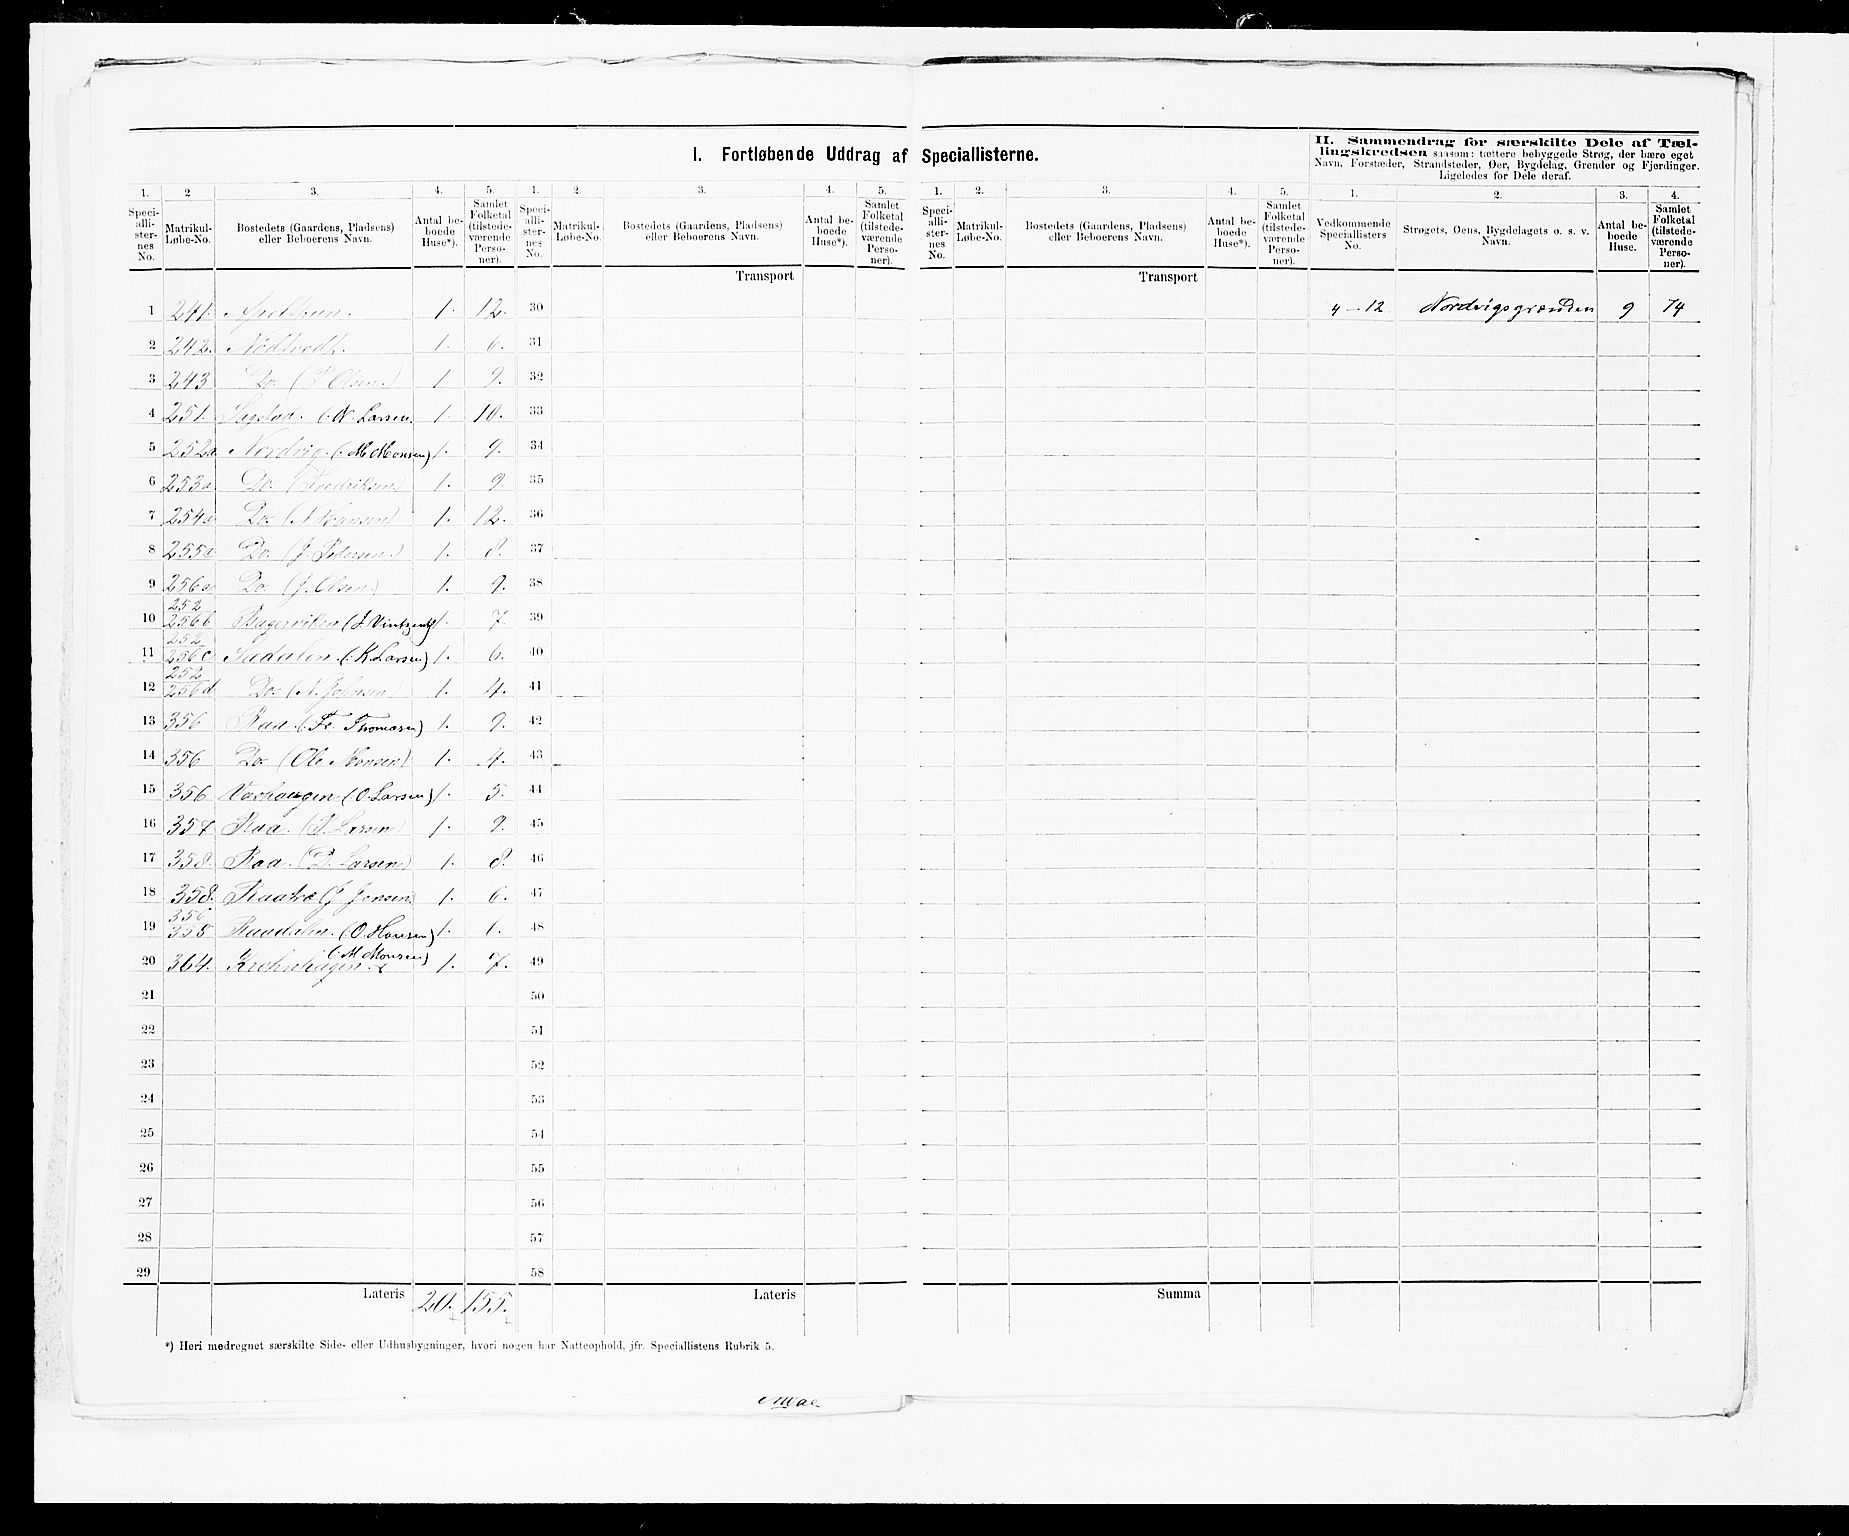 I. Fortløbende Uddrag af Speciallisterne.
II. Sammendrag for særskilte Dele af Tællingskredsen saasom: tættere bebyggede Strøg, der bære eget
Navn, Forstæder, Strandsteder, Øer, Bygdelag, Grender og Fjerdinger.
Ligeledes for Dele deraf.
1. 2 3. 4. 5. 1. 2. 3. 4. 5. 1. 2. 3. 4. 5. 1. 2. 3. 4.
Speciallisternes No. Matrikul-Løbe-No. Bostedets (Gaardens, Pladsens) eller Beboerens Navn. Antal beboede Huse*). Samlet Folketal (tilstedeværende Personer).
Speciallisternes No. Matrikul-Løbe-No. Bostedets (Gaardens, Pladsens) eller Beboerens Navn. Antal beboede Huse*). Samlet Folketal (tilstedeværende Personer).
Speciallisternes No. Matrikul-Løbe-No. Bostedets (Gaardens, Pladsens) eller Beboerens Navn. Antal beboede Huse*). Samlet Folketal (tilstedeværende Personer).
Vedkommende Speciallisters No. Strøgets, Øens, Bygdelagets o. s. v. Navn. Antal beboede Huse. Samlet Folketal (tilstedeværende Personer).
Transport Transport
1 241. Apeltun. 1. 12. 30 4-12. Nordvigsgrænden 9 74
2 242. Nödtvedt. 1. 6. 31
3 243 Do. (P Olsen.) 1. 9. 32
4 251. Sagstad. (: N. Larsen. 1. 10. 33
5 252a Nordvig. (: M Monsen) 1. 9. 34
6 253a Do. (Fredriksen) 1. 9. 35
7 254a Do. (N Hansen) 1. 12. 36
8 255a Do. (J. Pedersen.) 1. 8. 37
9 256a Do. (J. Olsen) 1. 9. 38
10 252 256b (J. Vintzents) 1. 7. 39
11 252 256c Sædalen. (: K Larsen) 1. 6. 40
12 252 256d Do. (N. Johnsen) 1. 4. 41
13 356 Raa. (: Fr. Thomasen) 1. 9. 42
14 356 Do (Ole Monsen) 1. 4. 43
15 356 Varhaugen (: O. Larsen) 1. 5. 44
16 357. Raa. (P. Larsen) 1. 9. 45
17 358. Raa. (D. Larsen.) 1. 8. 46
18 358. Raatræ (J Jensen) 1. 6. 47
19 356 358 Raadalen. (: O. Hansen) 1. 6. 48
20 364. Krohnhagen. (: M Monsen) 1. 7. 49
21 50
22 51
23 52
24 53
25 54
26 55
27 56
28 57
29 58
Lateris 20. 155. Lateris Summa
*) Heri medregnet særskilte Side- eller Udhusbygninger, hvori nogen har Natteophold, jfr. Speciallistens Rubrik 5.